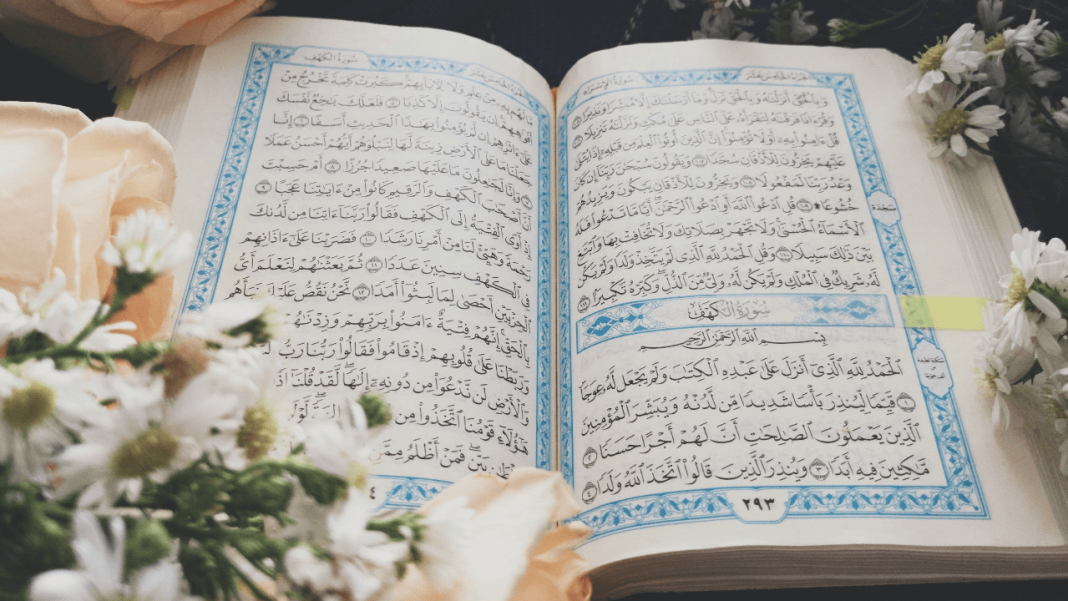 الجُزْءُ الخَامِسَ عَشَرَ سُورَةُ الإِسْرَاءِ
وَبِٱلْحَقِّ أَنزَلْنَٰهُ وَبِٱلْحَقِّ نَزَلَ وَمَآ أَرْسَلْنَٰكَ إِلَّا مُبَشِّرًا وَنَذِيرًا ١٠٥
وَقُرْءَانًا فَرَقْنَٰهُ لِتَقْرَأَهُۥ عَلَى ٱلنَّاسِ عَلَىٰ مُكْثٍ وَنَزَّلْنَٰهُ تَنزِيلًا ١٠٦
قُلْ ءَامِنُوا۟ بِهِۦٓ أَوْ لَا تُؤْمِنُوٓا۟ إِنَّ ٱلَّذِينَ أُوتُوا۟ ٱلْعِلْمَ مِن قَبْلِهِۦٓ إِذَا يُتْلَىٰ
عَلَيْهِمْ يَخِرُّونَ لِلْأَذْقَانِ سُجَّدًا ١٠٧ وَيَقُولُونَ سُبْحَٰنَ رَبِّنَآ إِن كَانَ
وَعْدُ رَبِّنَا لَمَفْعُولًا ١٠٨ وَيَخِرُّونَ لِلْأَذْقَانِ يَبْكُونَ وَيَزِيدُهُمْ
خُشُوعًا ۩ ١٠٩ قُلِ ٱدْعُوا۟ ٱللَّهَ أَوِ ٱدْعُوا۟ ٱلرَّحْمَٰنَ أَيًّا مَّا تَدْعُوا۟ فَلَهُ
سَجْدَة
ٱلْأَسْمَآءُ ٱلْحُسْنَىٰ وَلَا تَجْهَرْ بِصَلَاتِكَ وَلَا تُخَافِتْ بِهَا وَٱبْتَغِ
بَيْنَ ذَٰلِكَ سَبِيلًا ١١٠ وَقُلِ ٱلْحَمْدُ لِلَّهِ ٱلَّذِى لَمْ يَتَّخِذْ وَلَدًا وَلَمْ يَكُن
لَّهُۥ شَرِيكٌ فِى ٱلْمُلْكِ وَلَمْ يَكُن لَّهُۥ وَلِىٌّ مِّنَ ٱلذُّلِّ وَكَبِّرْهُ تَكْبِيرًۢا ١١١
سُورَةُ الكَهْفِ
بِسْمِ ٱللَّهِ ٱلرَّحْمَٰنِ ٱلرَّحِيمِ
ٱلْحَمْدُ لِلَّهِ ٱلَّذِىٓ أَنزَلَ عَلَىٰ عَبْدِهِ ٱلْكِتَٰبَ وَلَمْ يَجْعَل لَّهُۥ عِوَجَا
١ قَيِّمًا لِّيُنذِرَ بَأْسًا شَدِيدًا مِّن لَّدُنْهُ وَيُبَشِّرَ ٱلْمُؤْمِنِينَ
ٱلَّذِينَ يَعْمَلُونَ ٱلصَّٰلِحَٰتِ أَنَّ لَهُمْ أَجْرًا حَسَنًا ٢
مَّٰكِثِينَ فِيهِ أَبَدًا ٣ وَيُنذِرَ ٱلَّذِينَ قَالُوا۟ ٱتَّخَذَ ٱللَّهُ وَلَدًا ٤
٢٩٣
الجُزْءُ الخَامِسَ عَشَرَ سُورَةُ الكَهْفِ
مَّا لَهُم بِهِۦ مِنْ عِلْمٍ وَلَا لِءَابَآئِهِمْ كَبُرَتْ كَلِمَةً تَخْرُجُ مِنْ
أَفْوَٰهِهِمْ إِن يَقُولُونَ إِلَّا كَذِبًا ٥ فَلَعَلَّكَ بَٰخِعٌ نَّفْسَكَ
عَلَىٰٓ ءَاثَٰرِهِمْ إِن لَّمْ يُؤْمِنُوا۟ بِهَٰذَا ٱلْحَدِيثِ أَسَفًا ٦ إِنَّا
جَعَلْنَا مَا عَلَى ٱلْأَرْضِ زِينَةً لَّهَا لِنَبْلُوَهُمْ أَيُّهُمْ أَحْسَنُ عَمَلًا
٧ وَإِنَّا لَجَٰعِلُونَ مَا عَلَيْهَا صَعِيدًا جُرُزًا ٨ أَمْ حَسِبْتَ
أَنَّ أَصْحَٰبَ ٱلْكَهْفِ وَٱلرَّقِيمِ كَانُوا۟ مِنْ ءَايَٰتِنَا عَجَبًا ٩
إِذْ أَوَى ٱلْفِتْيَةُ إِلَى ٱلْكَهْفِ فَقَالُوا۟ رَبَّنَآ ءَاتِنَا مِن لَّدُنكَ
رَحْمَةً وَهَيِّئْ لَنَا مِنْ أَمْرِنَا رَشَدًا ١٠ فَضَرَبْنَا عَلَىٰٓ ءَاذَانِهِمْ
فِى ٱلْكَهْفِ سِنِينَ عَدَدًا ١١ ثُمَّ بَعَثْنَٰهُمْ لِنَعْلَمَ أَىُّ
ٱلْحِزْبَيْنِ أَحْصَىٰ لِمَا لَبِثُوٓا۟ أَمَدًا ١٢ نَّحْنُ نَقُصُّ عَلَيْكَ نَبَأَهُم
بِٱلْحَقِّ إِنَّهُمْ فِتْيَةٌ ءَامَنُوا۟ بِرَبِّهِمْ وَزِدْنَٰهُمْ
وَرَبَطْنَا عَلَىٰ قُلُوبِهِمْ إِذْ قَامُوا۟ فَقَالُوا۟ رَبُّنَا رَبُّ
وَٱلْأَرْضِ لَن نَّدْعُوَا۟ مِن دُونِهِۦٓ إِلَٰهًا لَّقَدْ قُلْنَآ إِذًا
هَٰٓؤُلَآءِ قَوْمُنَا ٱتَّخَذُوا۟ مِن
بَيِّنٍ فَمَنْ أَظْلَمُ مِمَّنِ